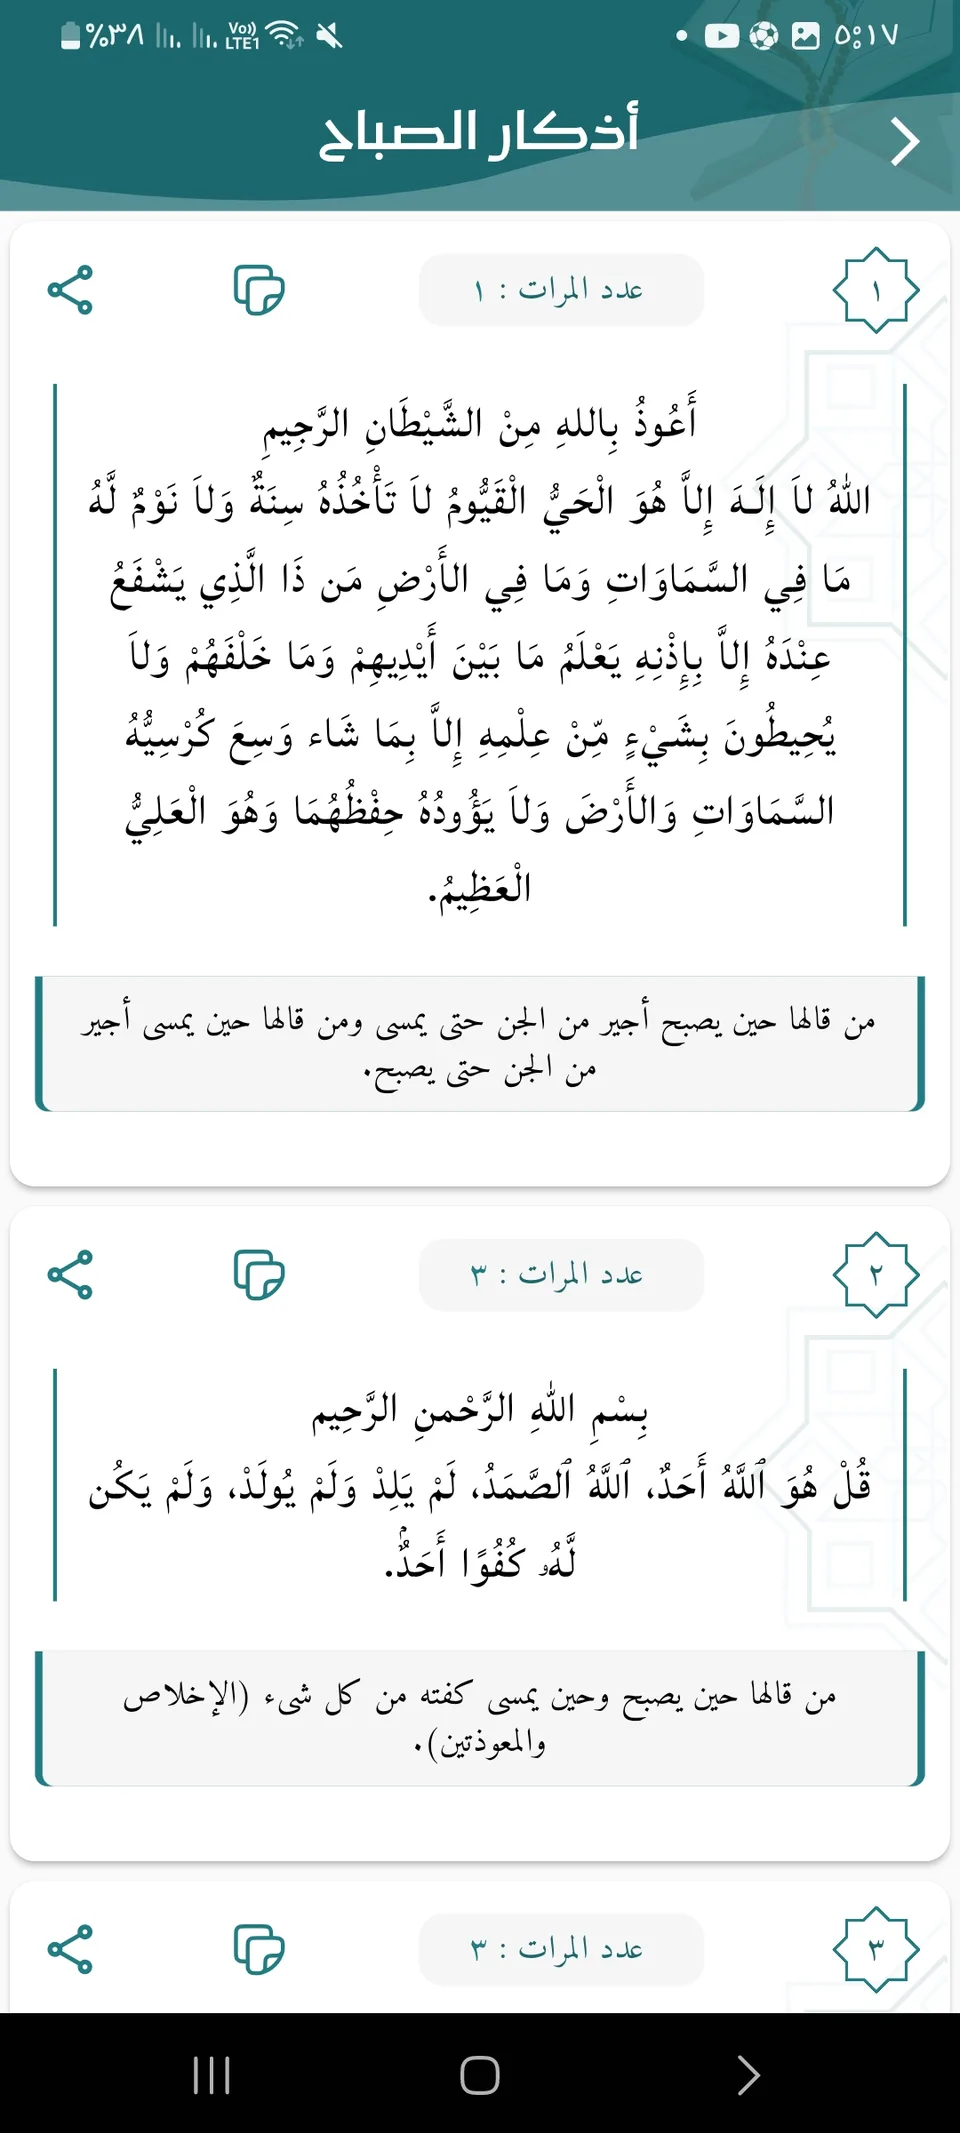 ٥:١٧
Vo))
LTE1
%٣٨
أذكار الصباح
١
عدد المرات : ١
أَعُوذُ بِاللهِ مِنْ الشَّيْطَانِ الرَّجِيمِ
اللهُ لاَ إِلَـهَ إِلاَّ هُوَ الْحَيُّ الْقَيُّومُ لاَ تَأْخُذُهُ سِنَةٌ وَلاَ نَوْمٌ لَّهُ
مَا فِي السَّمَاوَاتِ وَمَا فِي الأَرْضِ مَن ذَا الَّذِي يَشْفَعُ
عِنْدَهُ إِلاَّ بِإِذْنِهِ يَعْلَمُ مَا بَيْنَ أَيْدِيهِمْ وَمَا خَلْفَهُمْ وَلاَ
يُحِيطُونَ بِشَيْءٍ مِّنْ عِلْمِهِ إِلاَّ بِمَا شَاء وَسِعَ كُرْسِيُّهُ
السَّمَاوَاتِ وَالأَرْضَ وَلاَ يَؤُودُهُ حِفْظُهُمَا وَهُوَ الْعَلِيُّ
الْعَظِيمُ.
من قالها حين يصبح أجير من الجن حتى يمسى ومن قالها حين يمسى أجير
من الجن حتى يصبح.
٢
عدد المرات : ٣
بِسْمِ اللهِ الرَّحْمنِ الرَّحِيم
قُلْ هُوَ ٱللَّهُ أَحَدٌ، ٱللَّهُ ٱلصَّمَدُ، لَمْ يَلِدْ وَلَمْ يُولَدْ، وَلَمْ يَكُن
لَّهُۥ كُفُوًا أَحَدٌۢ.
من قالها حين يصبح وحين يمسى كفته من كل شىء (الإخلاص
والمعوذتين).
٣
عدد المرات : ٣